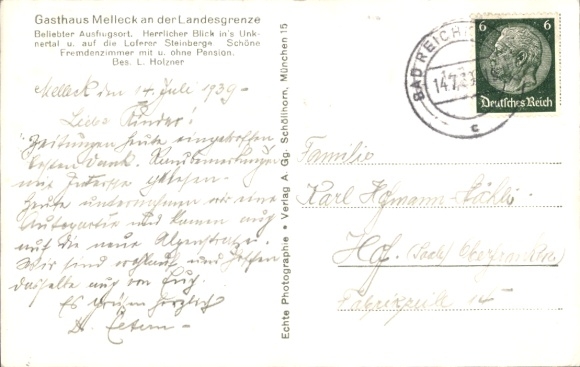 Gasthaus Melleck an der Landesgrenze
Beliebter Ausflugsort. Herrlicher Blick in's Unk-
nertal u. auf die Loferer Steinberge Schöne
Fremdenzimmer mit u. ohne Pension.
Bes. L. Holzner
Melleck den 14. Juli 1939 -
Liebe Kinder!
Zeitungen heute eingetroffen
besten Dank. Randbemerkungen
mit Interesse gelesen.
Heute unternehmen wir eine
Autopartie und kamen auch
auf die neue Alpenstraße.
Wir sind wohlauf und hoffen
dasselbe auch von Euch.
Es grüßen herzlich
D. Eltern -
Echte Photographie • Verlag A. Gg. Schöllhorn, München 15
BAD REICH
14.7.39
c
6 6
Deutsches Reich
Familie
Karl Hofmann-
Hof. Oberfranken
14